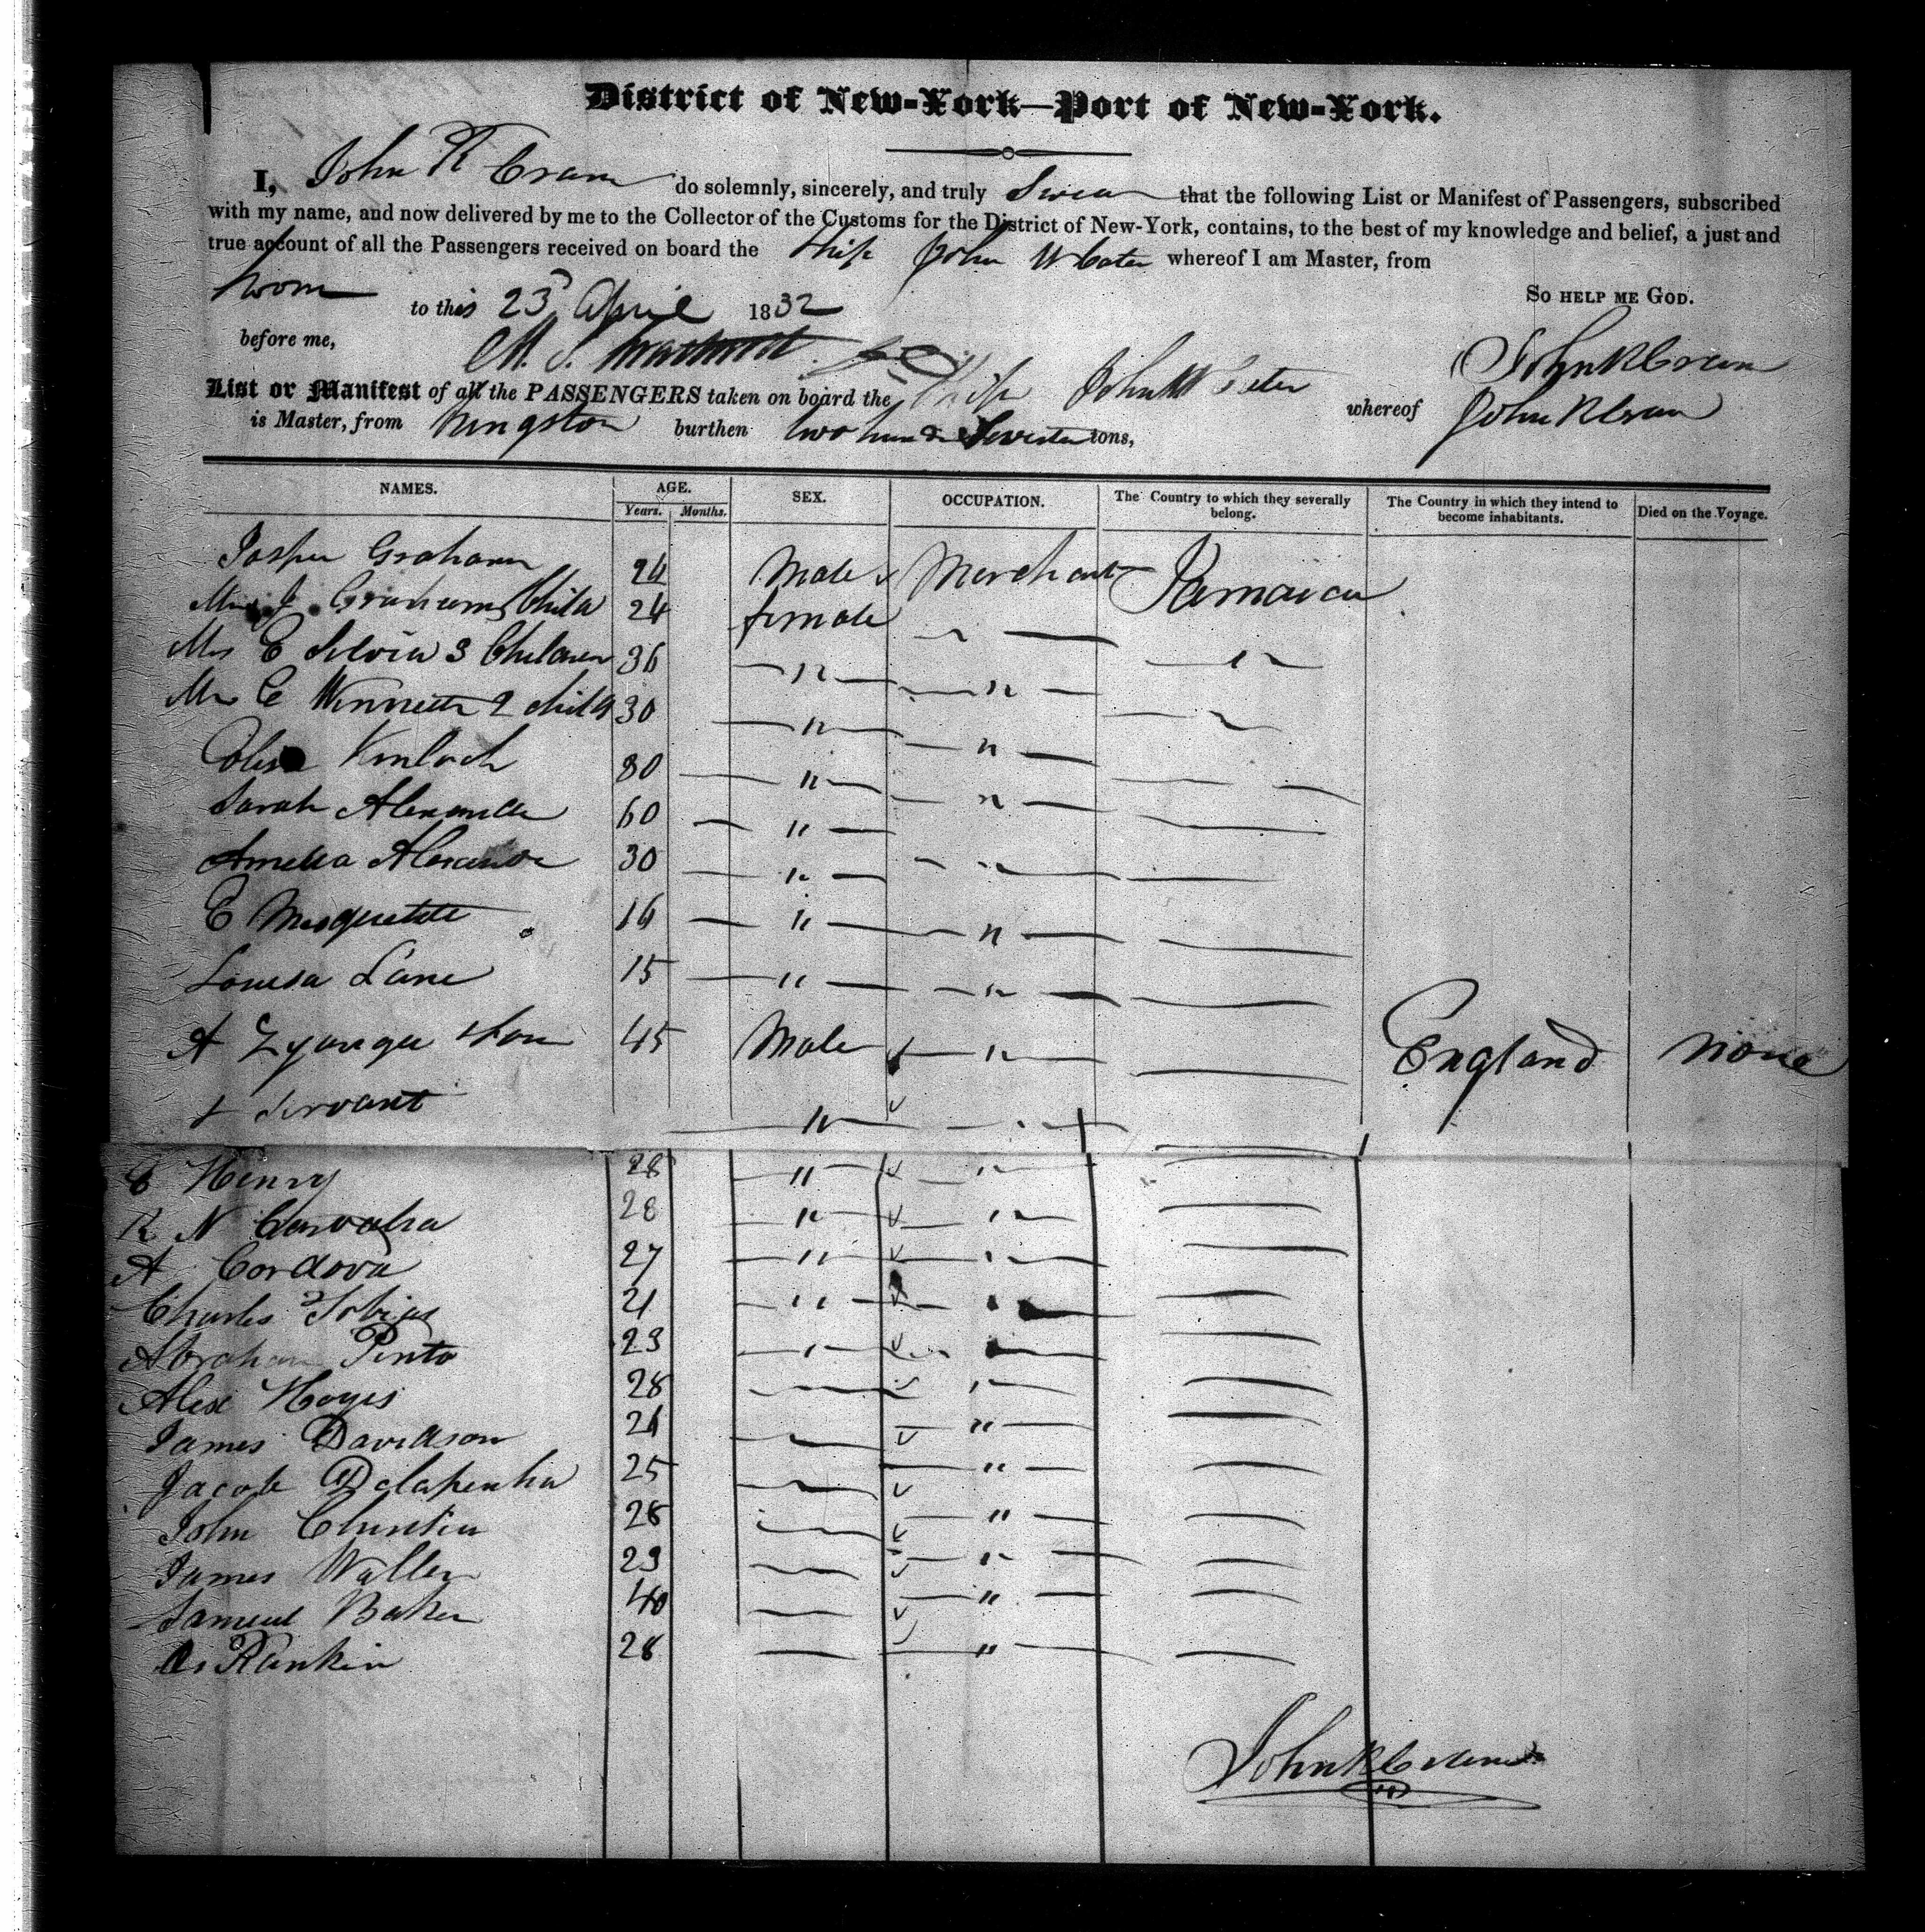 District of New-York—Port of New-York.
I, John R Cram do solemnly, sincerely, and truly Swear that the following List or Manifest of Passengers, subscribed
with my name, and now delivered by me to the Collector of the Customs for the District of New-York, contains, to the best of my knowledge and belief, a just and
true account of all the Passengers received on board the Ship John W Cater whereof I am Master, from
to this 23 April 1832
SO HELP ME GOD.
before me, John R Cram
List or Manifest of all the PASSENGERS taken on board the Ship John W Cater whereof John R Cram
is Master, from Kingston burthen two hun & tons,
NAMES. AGE. SEX. OCCUPATION. The Country to which they severally belong. The Country in which they intend to become inhabitants. Died on the Voyage.
Years. Months.
Graham 24 Male Merchant Jamaica
Mrs J Graham Child 24 female
Mrs E Silvia 3 Children 36 "
Mrs E 2 child 30 " "
Kinloch 30 " "
Sarah Alexander 60 " "
Amelia Alexander 30 " "
E 16 " "
Louisa Lane 15 " "
A & son 45 Male " England none
+ Servant "
E Henry 28 " "
R N Carvalho 28 " "
A Cordova 27 " "
Charles Tobias 21 "
Abraham Pinto 23 "
Alex Hoges 28 "
James Davidson 24 "
Jacob Delapenha 25 "
John Christie 28 "
James Waller 23 "
Samuel Baker 40 "
Rankin 28 "
John R Cram